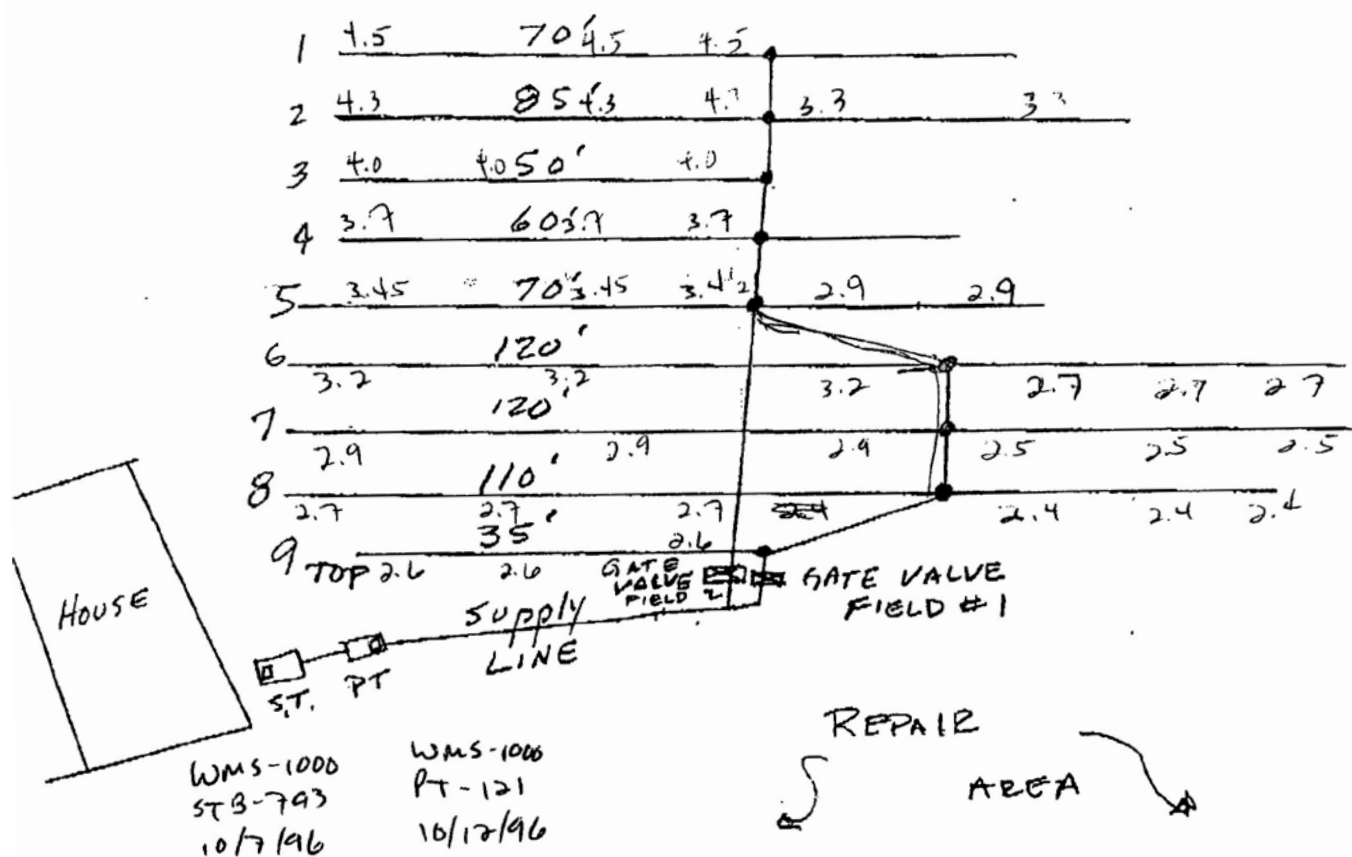 1 4.5 70' 4.5 4.5
2 4.3 85' 4.3 3.3
3 4.0 4.0 50' 4.0
4 3.7 60' 3.7 3.7
5 3.45 70' 3.45 2.9 2.9
6 120'
3.2 3.2 3.2 2.7 2.7 2.7
7 120'
2.9 2.9 2.9 2.5 2.5 2.5
8 110'
2.7 2.7 2.7 2.4 2.4 2.4
9 35' 2.6
TOP 2.6 2.6
GATE VALVE FIELD 2
GATE VALVE
FIELD #1
HOUSE
Supply
LINE
S.T.
PT
WMS-1000
STB-793
10/7/96
WMS-1000
PT-121
10/12/96
REPAIR
AREA